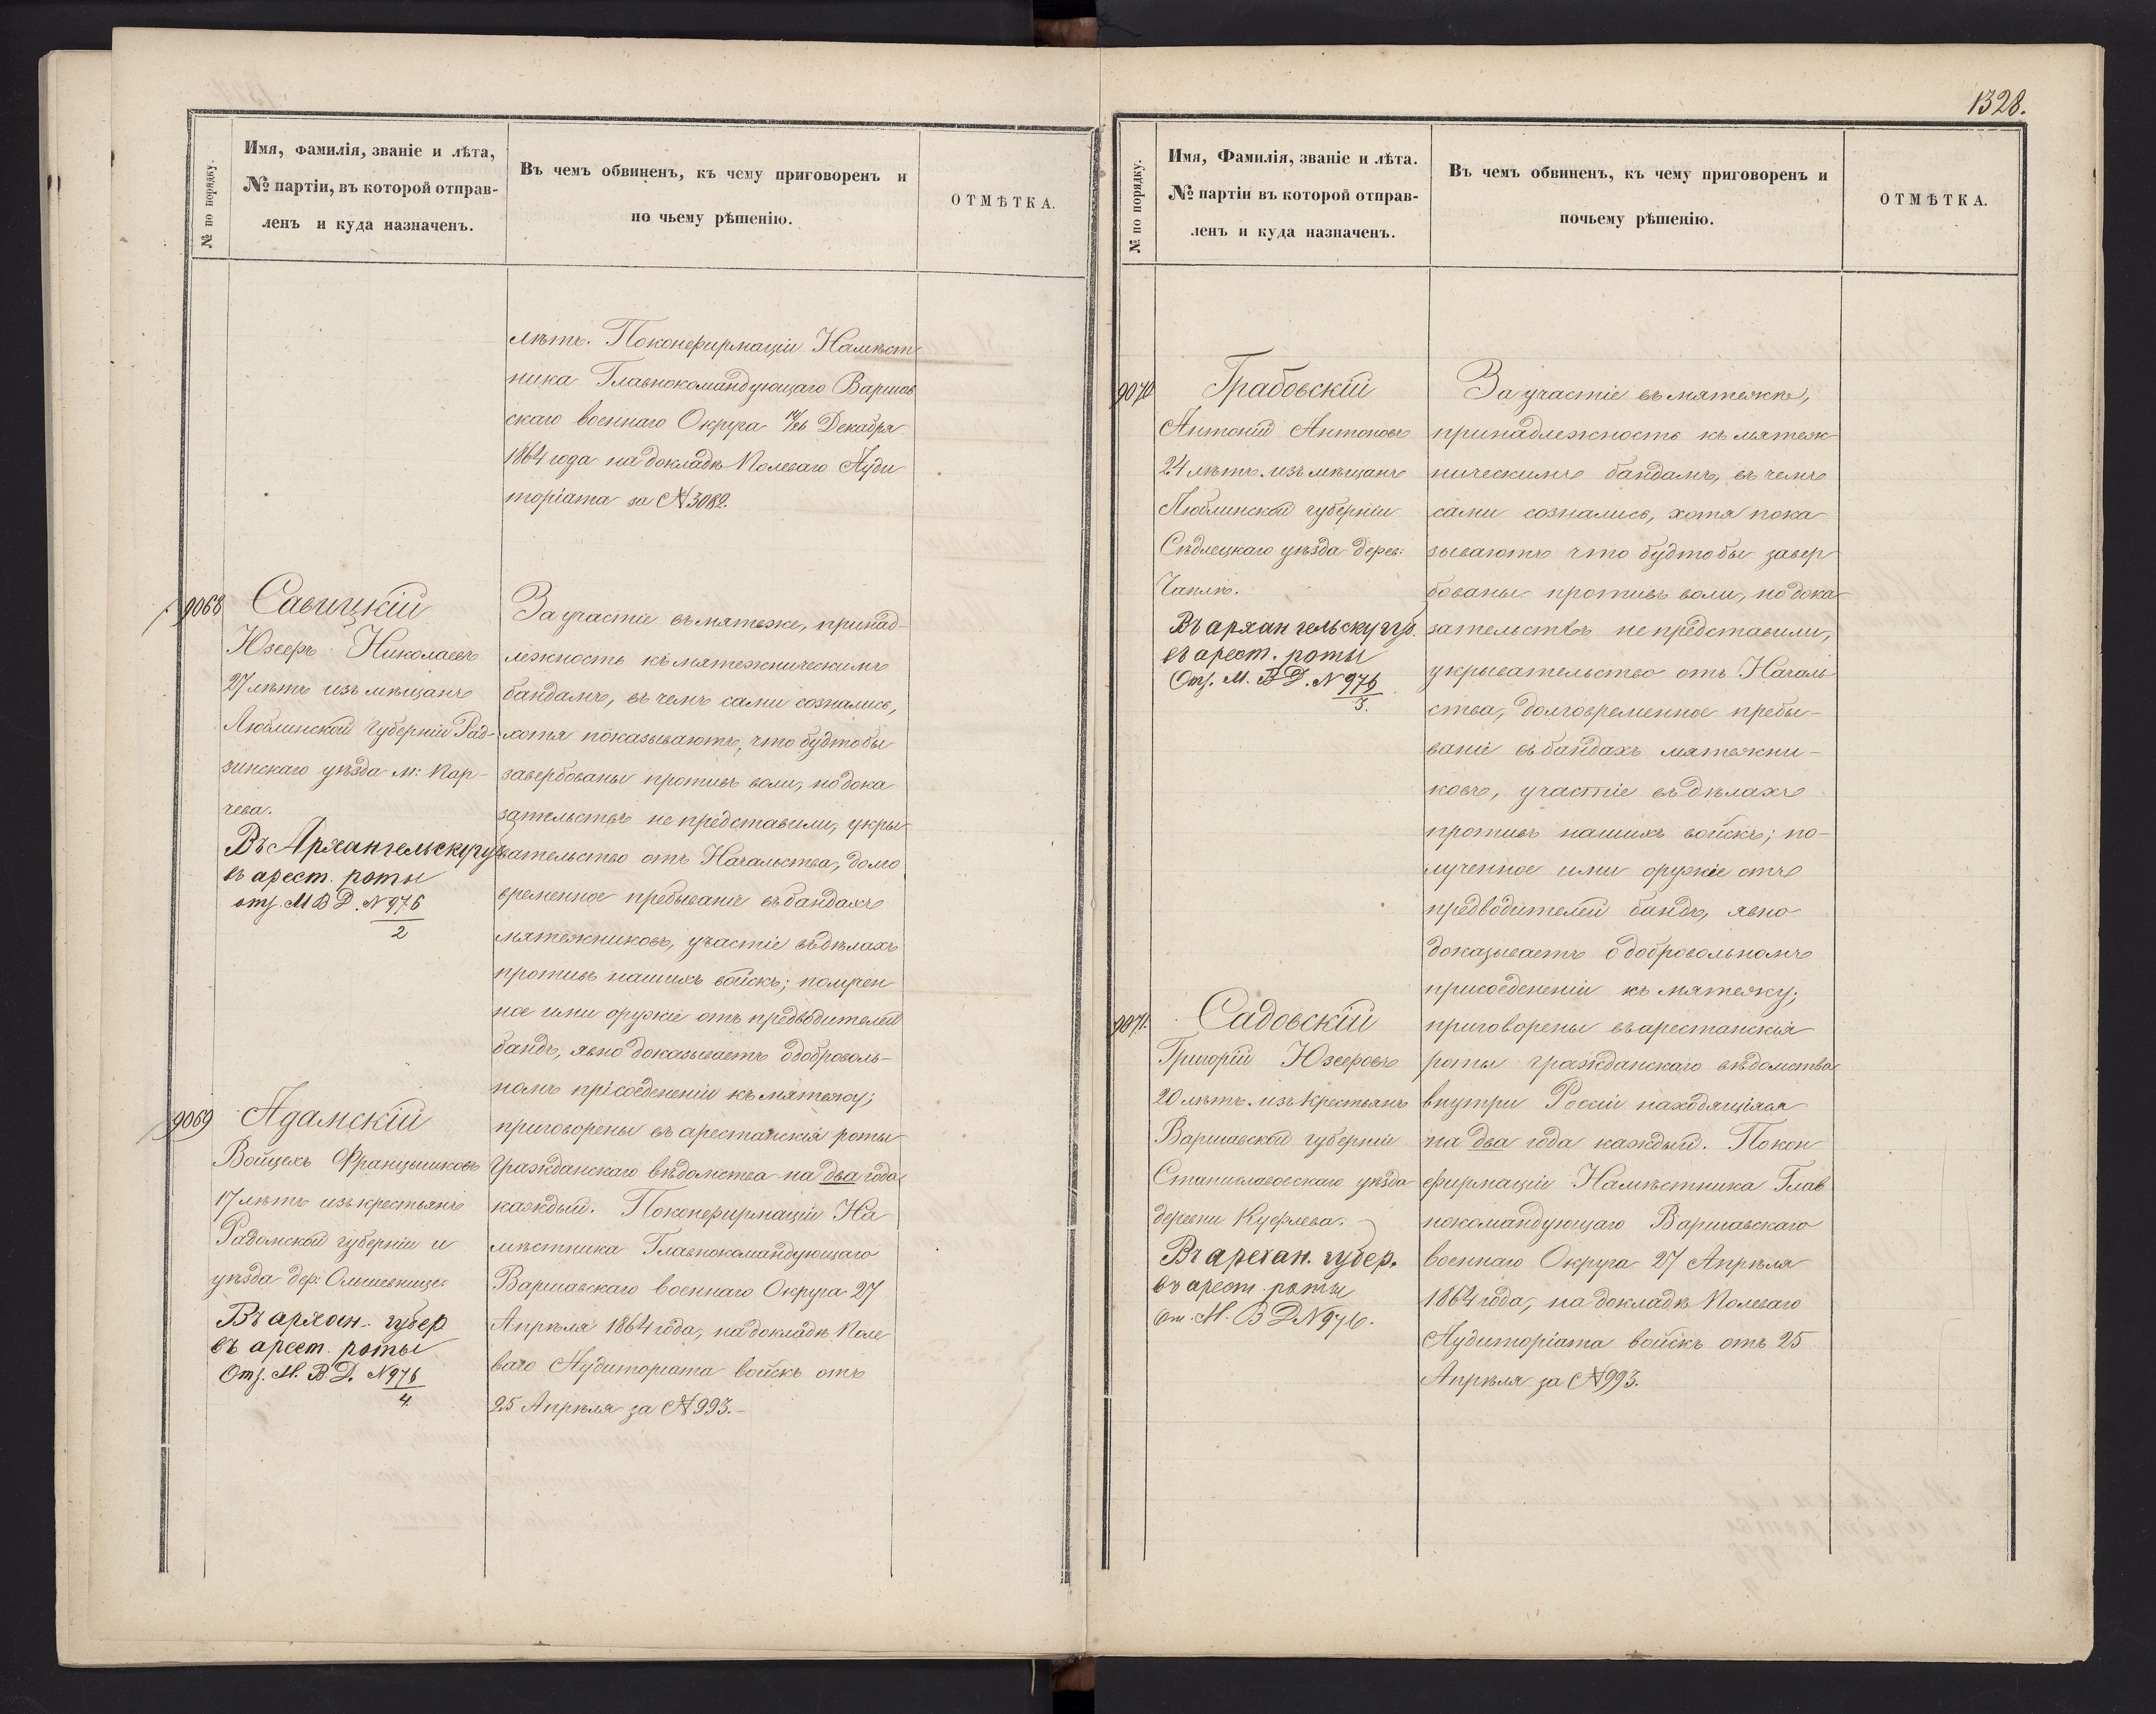 № по порядку.
Имя, Фамилія, званіе и лѣта,
№ партіи, въ которой отправ-
ленъ и куда назначенъ.
Въ чемъ обвиненъ, къ чему приговоренъ и
по чьему рѣшенію.
ОТМѢТКА.
лѣтъ. Поконфирмаціи Намѣст
ника Главнокомандующаго Варшав
скаго военнаго Округа 14/26 Декабря
1864 года на докладѣ Полеваго Ауди
торіата за N 3082.
9068
Савицкій
Юзефъ Николаевъ
27 лѣтъ изъ мѣщанъ
Люблинской Губерніи Рад-
зинскаго уѣзда м: Кар-
чева.
Въ Архангельску гу
въ арест. роты
отз. М В Д. N 976
2
За участіе въ мятеже, принад-
лежность къ мятежническимъ
бандамъ, въ чемъ сами сознались,
хотя показываютъ, что будтобы
завербованы противъ воли, но дока
зательствъ не представили, укры-
вательство отъ Начальства, долго
временное пребываніе въ бандахъ
мятежниковъ, участіе въ дѣлахъ
противъ нашихъ войскъ; получен
ное ими оружіе отъ предводителей
бандъ, явно доказываетъ о доброволь-
номъ присоедененіи къ мятежу;
приговорены въ арестанскія роты
Гражданскаго вѣдомства на два года
каждый. Поконфирмаціи На
мѣстника Главнокомандующаго
Варшавскаго военнаго Округа 27
Апрѣля 1864 года, на докладѣ Поле
ваго Аудиторіата войскъ отъ
25 Апрѣля за N 993.-
9069
Адамскій
Войцехъ Францышковъ
17 лѣтъ изъ крестьянъ
Радомской губерніи и
уѣзда дер:
Въ архан. губер
въ арест. роты
Отз. М. В Д. N 976
4
1328.
№ по порядку.
Имя, Фамилія, званіе и лѣта.
№ партіи въ которой отправ-
ленъ и куда назначенъ.
Въ чемъ обвиненъ, къ чему приговоренъ и
почьему рѣшенію.
ОТМѢТКА.
9070
Грабовскій
Антоній Антоновъ
24 лѣтъ. изъ мѣщанъ
Люблинской губерніи
Сѣдлецкаго уѣзда дерев:
Въ архангельску губ.
въ арест. роты
Отз. М. В Д. N 976
3.
За участіе въ мятежѣ,
принадлежность къ мятеж
ническимъ бандамъ, въ чемъ
сами сознались, хотя пока
зываютъ что будтобы завер
бованы противъ воли, но дока
зательствъ не представили,
укрывательство отъ Началь
ства, долговременное пребы-
ваніе въ бандахъ мятежни-
ковъ, участіе въ дѣлахъ
противъ нашихъ войскъ; по-
лученное ими оружіе отъ
предводителей бандъ, явно
доказываетъ о добровольномъ
присоедененіи къ мятежу;
приговорены въ арестанскія
роты гражданскаго вѣдомства
внутри Россіи находящіяся
на два года каждый. Покон
фирмаціи Намѣстника Глав
нокомандующаго Варшавскаго
военнаго Округа 27 Апрѣля
1864 года, на докладѣ Полеваго
Аудиторіата войскъ отъ 25
Апрѣля за N 993.
9071.
Садовскій
Григорій Юзефовъ
20 лѣтъ. изъ Крестьянъ
Варшавской губерніи
Станиславовскаго уѣзда
деревни Куфлева.
Въ архан. губер.
въ арест роты
От. М. В Д N 976.